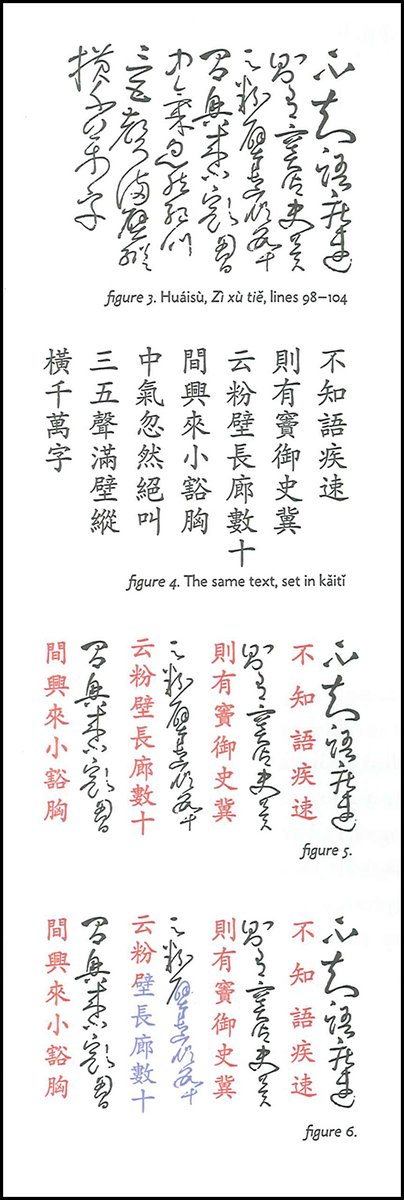 不知語疾速
則有竇御史冀
云粉壁長廊數十
間興來小豁胸
中氣忽然絕叫
三五聲滿壁縱
橫千萬字
figure 3. Huáisù, Zì xù tiě, lines 98–104
不知語疾速
則有竇御史冀
云粉壁長廊數十
間興來小豁胸
中氣忽然絕叫
三五聲滿壁縱
橫千萬字
figure 4. The same text, set in kǎitǐ
不知語疾速
不知語疾速
則有竇御史冀
則有竇御史冀
云粉壁長廊數十
云粉壁長廊數十
間興來小豁胸
間興來小豁胸
figure 5.
不知語疾速
不知語疾速
則有竇御史冀
則有竇御史冀
云粉壁長廊數十
云粉壁長廊數十
間興來小豁胸
間興來小豁胸
figure 6.